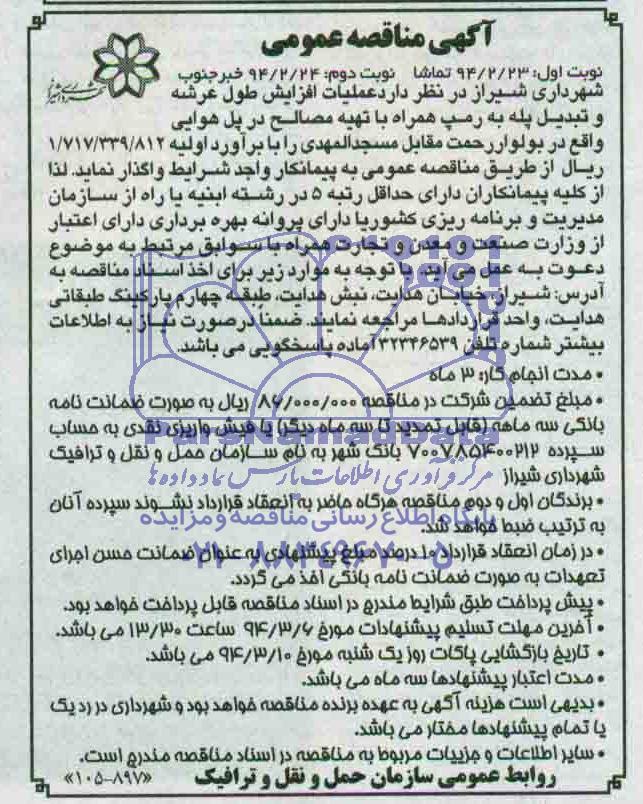 آگهی مناقصه عمومی
نوبت اول: ۹۴/۲/۲۳ تماشا نوبت دوم: ۹۴/۲/۲۴ خبرجنوب
شهرداری شیراز در نظر دارد عملیات افزایش طول عرشه
و تبدیل پله به رمپ همراه با تهیه مصالح در پل هوایی
واقع در بولوار رحمت مقابل مسجدالمهدی را با برآورد اولیه ۱/۷۱۷/۳۳۹/۸۱۲
ریال از طریق مناقصه عمومی به پیمانکار واجد شرایط واگذار نماید. لذا
از کلیه پیمانکاران دارای حداقل رتبه ۵ در رشته ابنیه یا راه از سازمان
مدیریت و برنامه ریزی کشور یا دارای پروانه بهره برداری دارای اعتبار
از وزارت صنعت و معدن و تجارت همراه با سوابق مرتبط به موضوع
دعوت به عمل می آید. با توجه به موارد زیر برای اخذ اسناد مناقصه به
آدرس: شیراز، خیابان هدایت، نبش هدایت، طبقه چهارم پارکینگ طبقاتی
هدایت، واحد قراردادها مراجعه نمایند. ضمنا در صورت نیاز به اطلاعات
بیشتر شماره تلفن ۳۲۳۴۶۵۳۹ آماده پاسخگویی می باشد.
• مدت انجام کار: ۳ ماه
• مبلغ تضمین شرکت در مناقصه ۸۶/۰۰۰/۰۰۰ ریال به صورت ضمانت نامه
بانکی سه ماهه (قابل تمدید تا سه ماه دیگر) یا فیش واریزی نقدی به حساب
سپرده ۷۰۰۷۸۵۴۰۰۲۱۲ بانک شهر به نام سازمان حمل و نقل و ترافیک
شهرداری شیراز
• برندگان اول و دوم مناقصه هرگاه حاضر به انعقاد قرارداد نشوند سپرده آنان
به ترتیب ضبط خواهد شد.
• در زمان انعقاد قرارداد ۱۰ درصد مبلغ پیشنهادی به عنوان ضمانت حسن اجرای
تعهدات به صورت ضمانت نامه بانکی اخذ می گردد.
• پیش پرداخت طبق شرایط مندرج در اسناد مناقصه قابل پرداخت خواهد بود.
• آخرین مهلت تسلیم پیشنهادات مورخ ۹۴/۳/۶ ساعت ۱۳/۳۰ می باشد.
• تاریخ بازگشایی پاکات روز یک شنبه مورخ ۹۴/۳/۱۰ می باشد.
• مدت اعتبار پیشنهادها سه ماه می باشد.
• بدیهی است هزینه آگهی به عهده برنده مناقصه خواهد بود و شهرداری در رد یک
یا تمام پیشنهادها مختار می باشد.
• سایر اطلاعات و جزییات مربوط به مناقصه در اسناد مناقصه مندرج است.
روابط عمومی سازمان حمل و نقل و ترافیک «۱۰۵-۸۹۷»
ParsNamadData
مرکز فرآوری اطلاعات پارس نماد داده ها
پایگاه اطلاع رسانی مناقصه و مزایده
۰۲۱-۸۸۳۴۹۶۷۰-۵